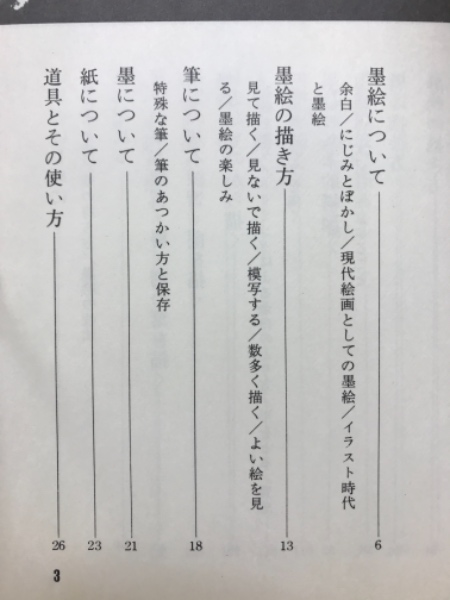 墨絵について 6
余白/にじみとぼかし/現代絵画としての墨絵/イラスト時代
と墨絵
墨絵の描き方 13
見て描く/見ないで描く/模写する/数多く描く/よい絵を見
る/墨絵の楽しみ
筆について 18
特殊な筆/筆のあつかい方と保存
墨について 21
紙について 23
道具とその使い方 26
3